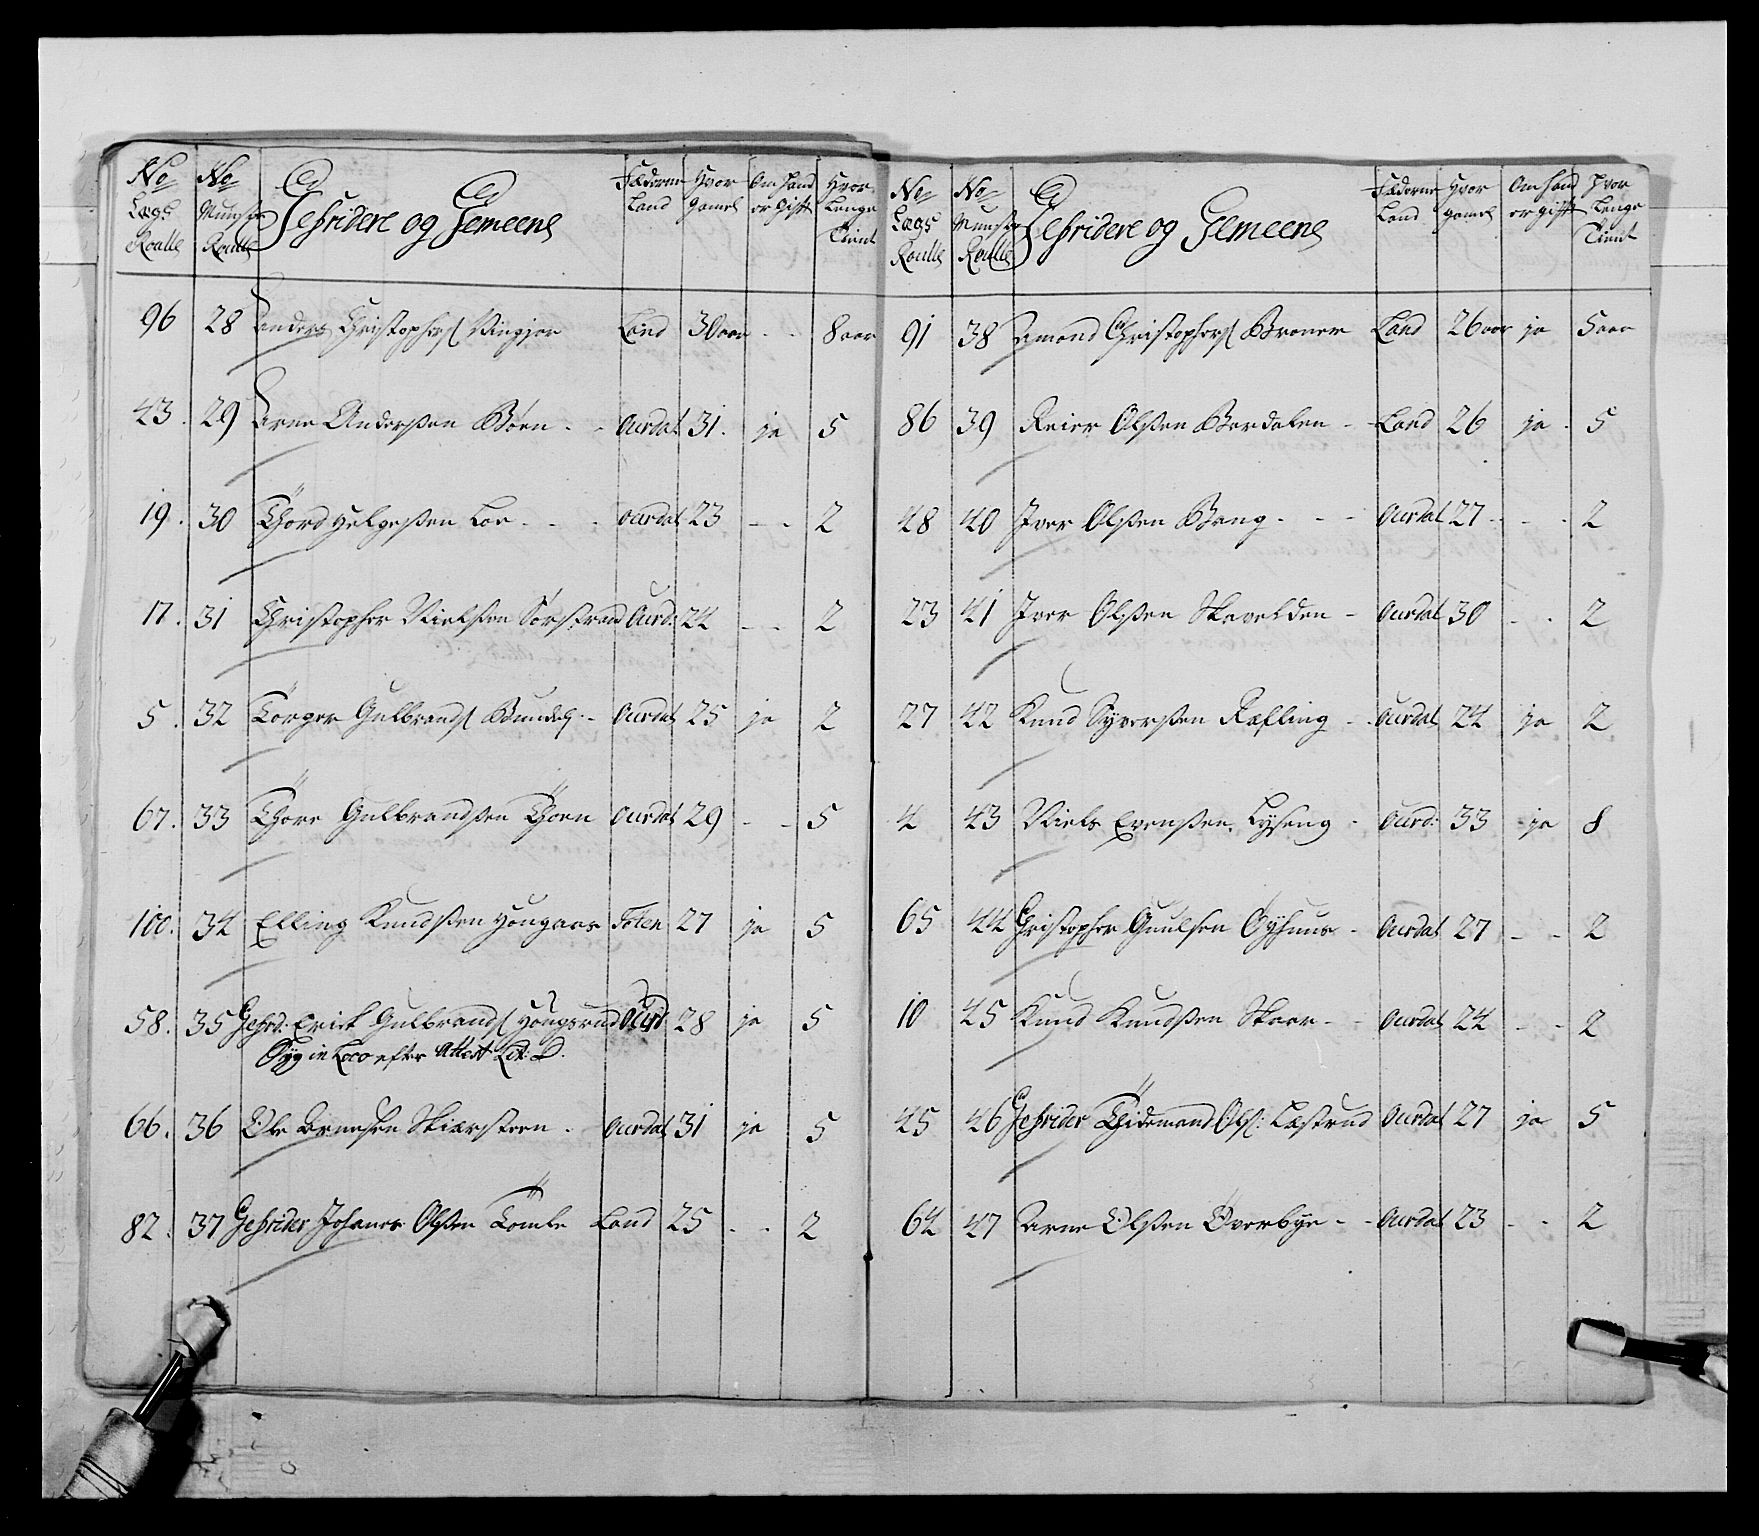 No Lægs Roulle | No Munster Roulle | Gefridere og Gemeene | Fæderne Land | Hvor Gamel | Om hand er Gift | Hvor Lenge Tient
96 28 Anders Christophers Land 30 aar - - 8 aar
43. 29 Arne Anderssen Bøen - - Ourdal 31. ja 5
19. 30 Thord Helgessen Loe - - - Ourdal 23 - - 2
17. 31 Christopher Nielssen Sørstrand Ourd: 24 - - 2
5. 32 Torger Gulbrands - Ourdal 25 ja 2
67. 33 Thore Gulbrandssen Thoen Ourdal 29 - - 5
100. 34 Elling Knudssen Hougaar Toten 27 ja 5
58. 35 Gefrd: Erick Gulbrands Hougsrud Ourd 28 ja 5
Syg in Loco efter Attest Lit: D.
66. 36 Ole Arnesen Skiærsteen - Ourdal 31 ja 5
82. 37 Gefrider Johanes Olssen Tomle Land 25 - - 2
No Lægs Roulle | No Munster Roulle | Gefridere og Gemeene | Fæderne Land | Hvor gamel | Om hand er gift | Hvor Lenge Tient
91 38 Amond Christophers Broner Land 26 aar ja 5 aar
86 39 Reier Olssen Berdalen - Land 26 ja - 5
48 40 Iver Olssen Bang - - - Ourdal 27 - - - 2
23 41 Iver Olssen Skavelden - Ourdal 30 - - 2
27 42 Knud Syverssen Ræfling - Ourdal 24 ja 2
4 43 Niels Evenssen Lyseng - Ourd: 33 ja 8
65 44 Christopher Guulsen Øyhuus - Ourdal 27 - - 2
10 45 Knud Knudssen Skaar - - Ourdal 24 - - 2
45 46 Gefrider Thidemand Ols: Læstrud Ourdal 27 ja 5
64 47 Arne Olssen Øverbye - - Ourdal 23 - - 2